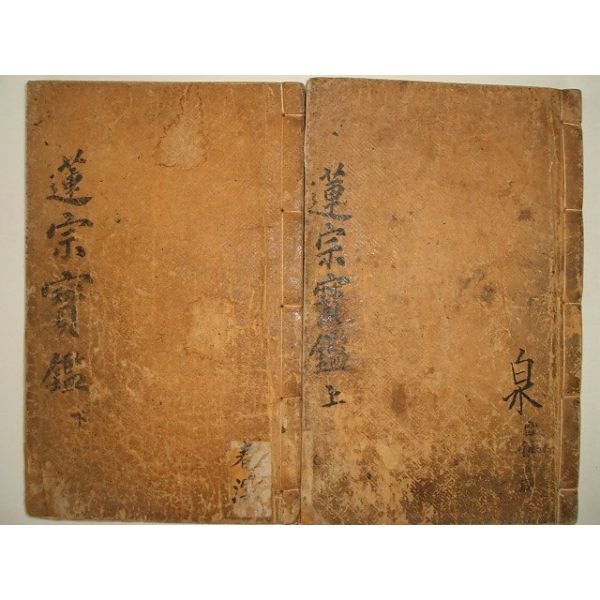 蓮宗寶鑑 上
泉
蓮宗寶鑑 下
春